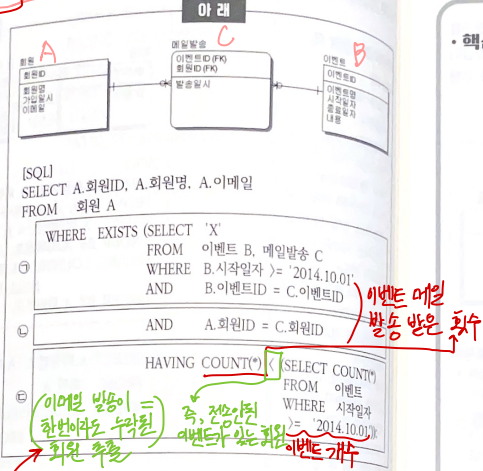 아 래
· 핵
회원 A
회원ID
회원명
가입일시
이메일
메일발송 C
이벤트ID (FK)
회원ID (FK)
발송일시
이벤트 B
이벤트ID
이벤트명
시작일자
종료일자
내용
[SQL]
SELECT A.회원ID, A.회원명, A.이메일
FROM 회원 A
㉠ WHERE EXISTS (SELECT 'X'
FROM 이벤트 B, 메일발송 C
WHERE B.시작일자 >= '2014.10.01'
AND B.이벤트ID = C.이벤트ID
㉡ AND A.회원ID = C.회원ID
이벤트 메일
발송 받은 횟수
㉢ HAVING COUNT(*) < (SELECT COUNT(*)
FROM 이벤트
WHERE 시작일자
>= '2014.10.01'));
이벤트 개수
즉, 전송안된
이벤트가 있는 회원
이메일 발송이 =
한번이라도 누락된
회원 추출